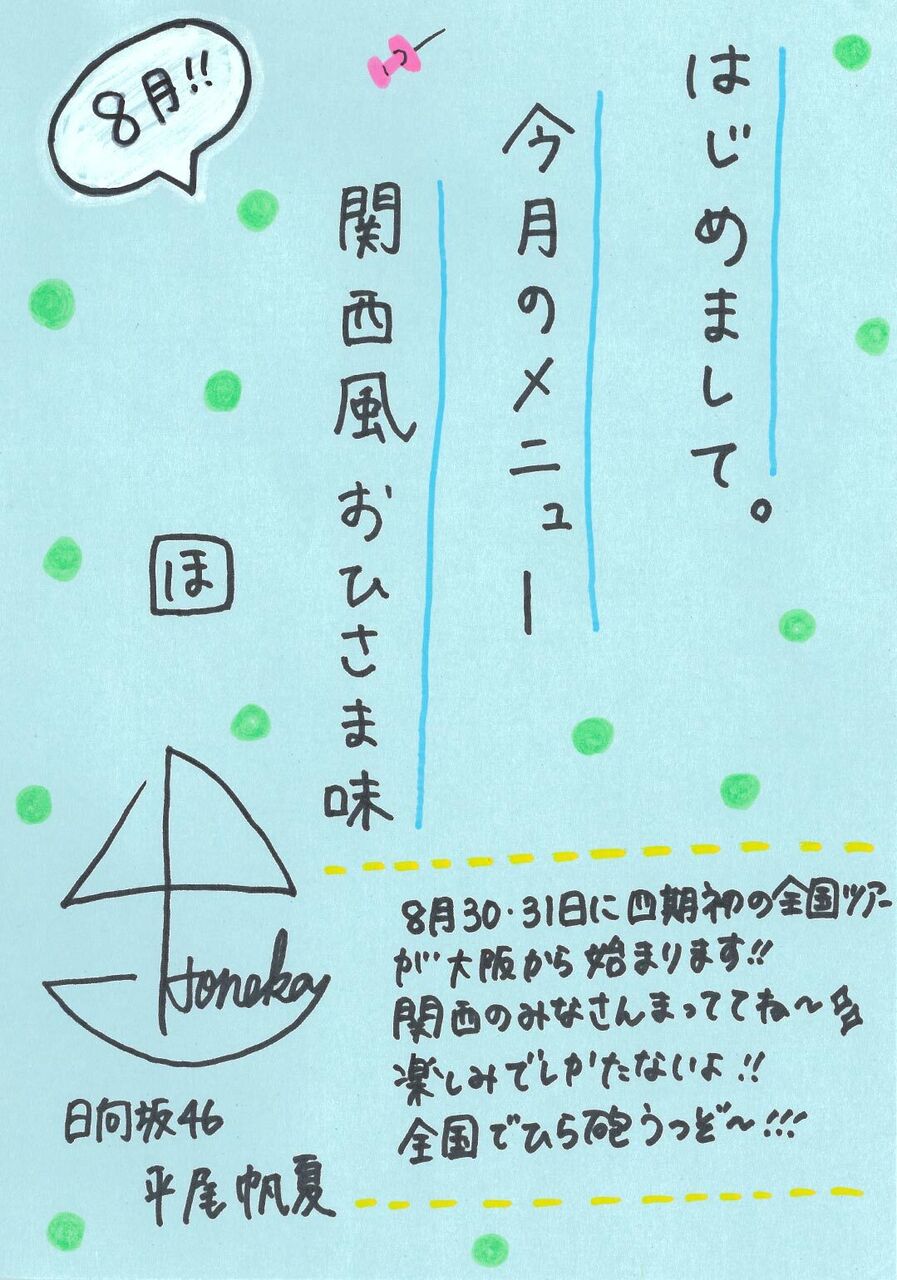 8月!!
はじめまして。
今月のメニュー
関西風おひさま味
ほ
Honoka
日向坂46
平尾帆夏
8月30・31日に四期初の全国ツアー
が大阪から始まります!!
関西のみなさんまっててね〜
楽しみでしかたないよ!!
全国でひら砲うつぞ〜!!!